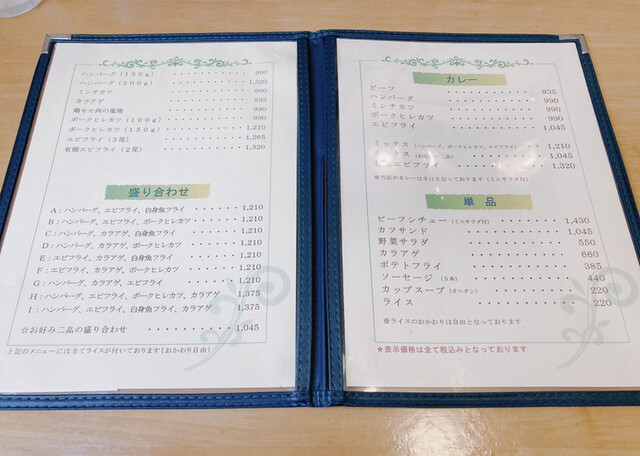 ハンバーグ(150g) ・・・・・・・・・・ 990
ハンバーグ(300g) ・・・・・・・・・・ 1,320
ミンチカツ ・・・・・・・・・・ 990
カラアゲ ・・・・・・・・・・ 935
鶏モモ肉の塩焼 ・・・・・・・・・・ 990
ポークヒレカツ(100g) ・・・・・・・・・・ 990
ポークヒレカツ(150g) ・・・・・・・・・・ 1,210
エビフライ(3尾) ・・・・・・・・・・ 1,265
有頭エビフライ(2尾) ・・・・・・・・・・ 1,320
盛り合わせ
A:ハンバーグ、エビフライ、白身魚フライ ・・・・・・・ 1,210
B:ハンバーグ、エビフライ、ポークヒレカツ ・・・・・・ 1,210
C:ハンバーグ、カラアゲ、白身魚フライ ・・・・・・・ 1,210
D:ハンバーグ、カラアゲ、ポークヒレカツ ・・・・・・ 1,210
E:エビフライ、カラアゲ、白身魚フライ ・・・・・・・ 1,210
F:エビフライ、カラアゲ、ポークヒレカツ ・・・・・・ 1,210
G:ハンバーグ、カラアゲ、エビフライ ・・・・・・・・ 1,210
H:ハンバーグ、エビフライ、ポークヒレカツ、カラアゲ ・・ 1,375
I:ハンバーグ、エビフライ、白身魚フライ、カラアゲ ・・・ 1,375
☆お好み二品の盛り合わせ ・・・・・・・・ 1,045
上記のメニューには全てライスが付いております(おかわり自由)
カレー
ビーフ ・・・・・・・・・・ 935
ハンバーグ ・・・・・・・・・・ 990
ミンチカツ ・・・・・・・・・・ 990
ポークヒレカツ ・・・・・・・・・・ 990
エビフライ ・・・・・・・・・・ 1,045
ミックス(ハンバーグ、ポークヒレカツ、エビフライ) ・・・・ 1,210
ックス ・・・・・・・・ 1,045
エビフライ ・・・・・・・・ 1,320
※当店のカレーは辛口となっております(ミニサラダ付)
単品
ビーフシチュー(ミニサラダ付) ・・・・・・・ 1,430
カツサンド ・・・・・・・・・・ 1,045
野菜サラダ ・・・・・・・・・・ 550
カラアゲ ・・・・・・・・・・ 660
ポテトフライ ・・・・・・・・・・ 385
ソーセージ(5本) ・・・・・・・・・・ 440
カップスープ(オニオン) ・・・・・・・・ 220
ライス ・・・・・・・・・・ 220
※ライスのおかわりは自由となっております
★表示価格は全て税込みとなっております